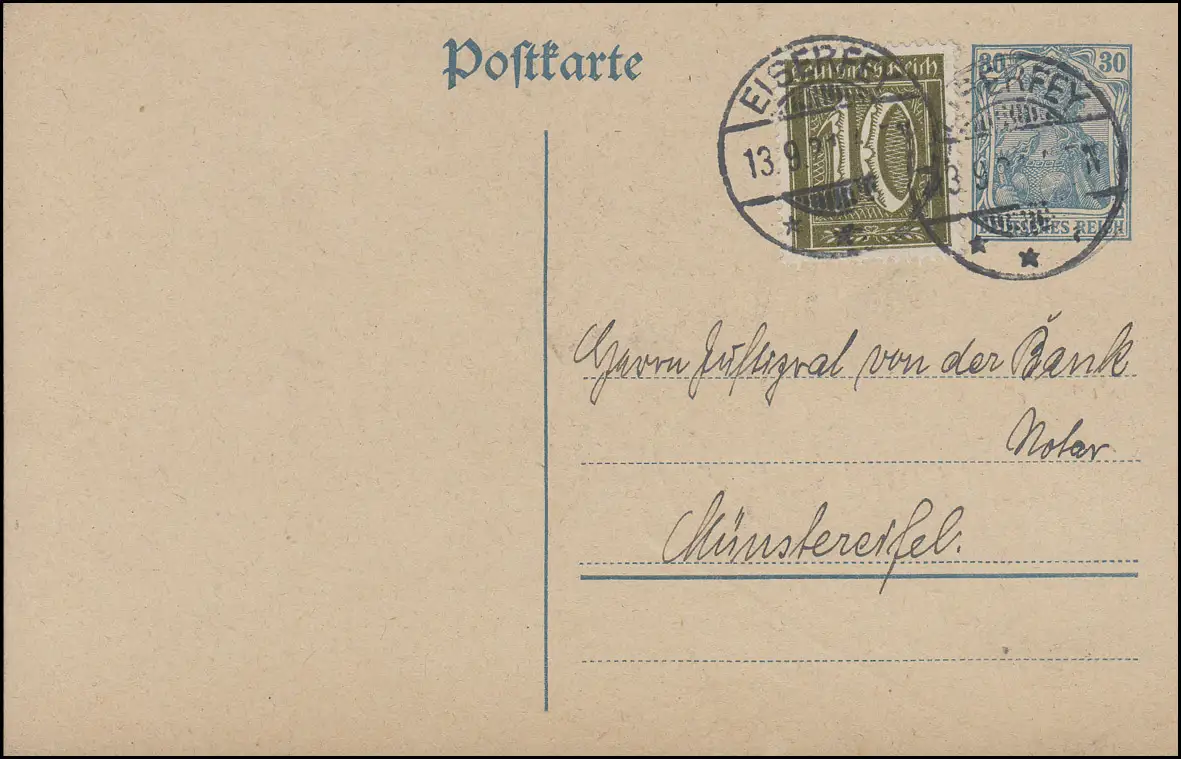 Postkarte
Deutsches Reich
10
30 30
DEUTSCHES REICH
EISERFEY
13.9.21
EISERFEY
Herrn Justizrat von der Bank
Notar
Münstereifel.